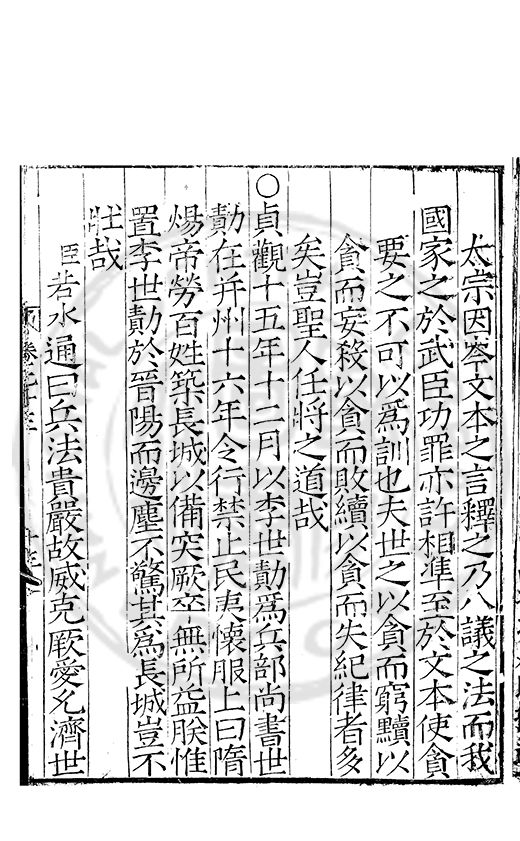 太宗因岑文本之言釋之乃八議之法而我
國家之於武臣功罪亦許相準至於文本使貪
要之不可以爲訓也夫世之以貪而窮黷以
貪而妄殺以貪而敗績以貪而失紀律者多
矣豈聖人任將之道哉
○貞觀十五年十二月以李世勣爲兵部尚書世
勣在并州十六年令行禁止民夷懷服上曰隋
煬帝勞百姓築長城以備突厥卒無所益朕惟
置李世勣於晉陽而邊塵不驚其爲長城豈不
壯哉
臣若水通曰兵法貴嚴故威克厥愛允濟世